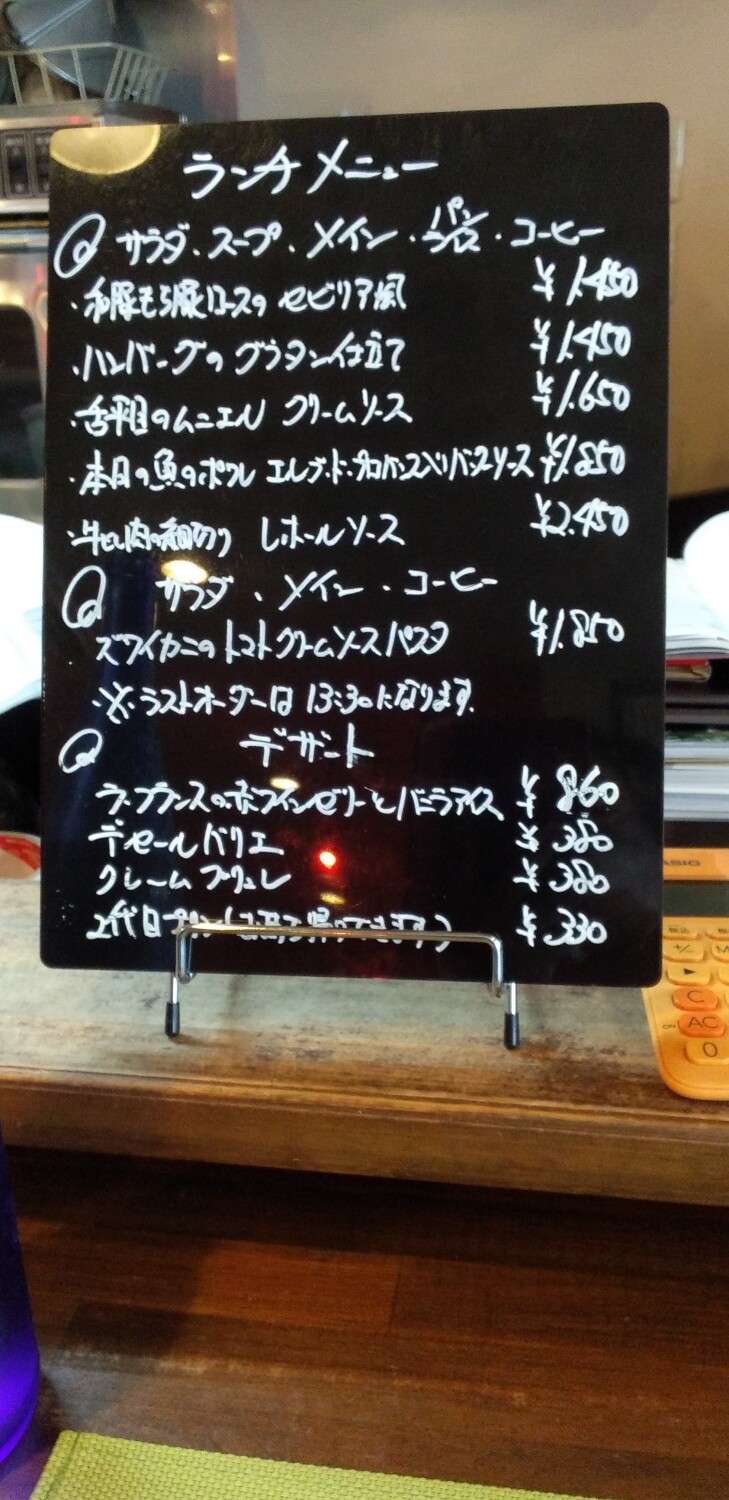 ランチメニュー
サラダ、スープ、メイン・パン/ライス・コーヒー
・和豚もち豚ロースの セビリア風 ¥1.450
・ハンバーグの グラタン仕立て ¥1.450
・舌平目のムニエル クリームソース ¥1.650
・本日の魚のポワレ エルブ・ド・プロバンス入りバースソース ¥1.850
・牛ヒレ肉の細切り レホールソース ¥2.450
サラダ、メイン・コーヒー
ズワイカニのトマトクリームソースパスタ ¥1.850
※ラストオーダーは 13:30になります。
デザート
ラ・フランスの赤ワインゼリーとバニラアイス ¥860
デセールバリエ ¥380
クレームブリュレ ¥380
2代目プリン ¥330
CASIO
C
AC
ON
0